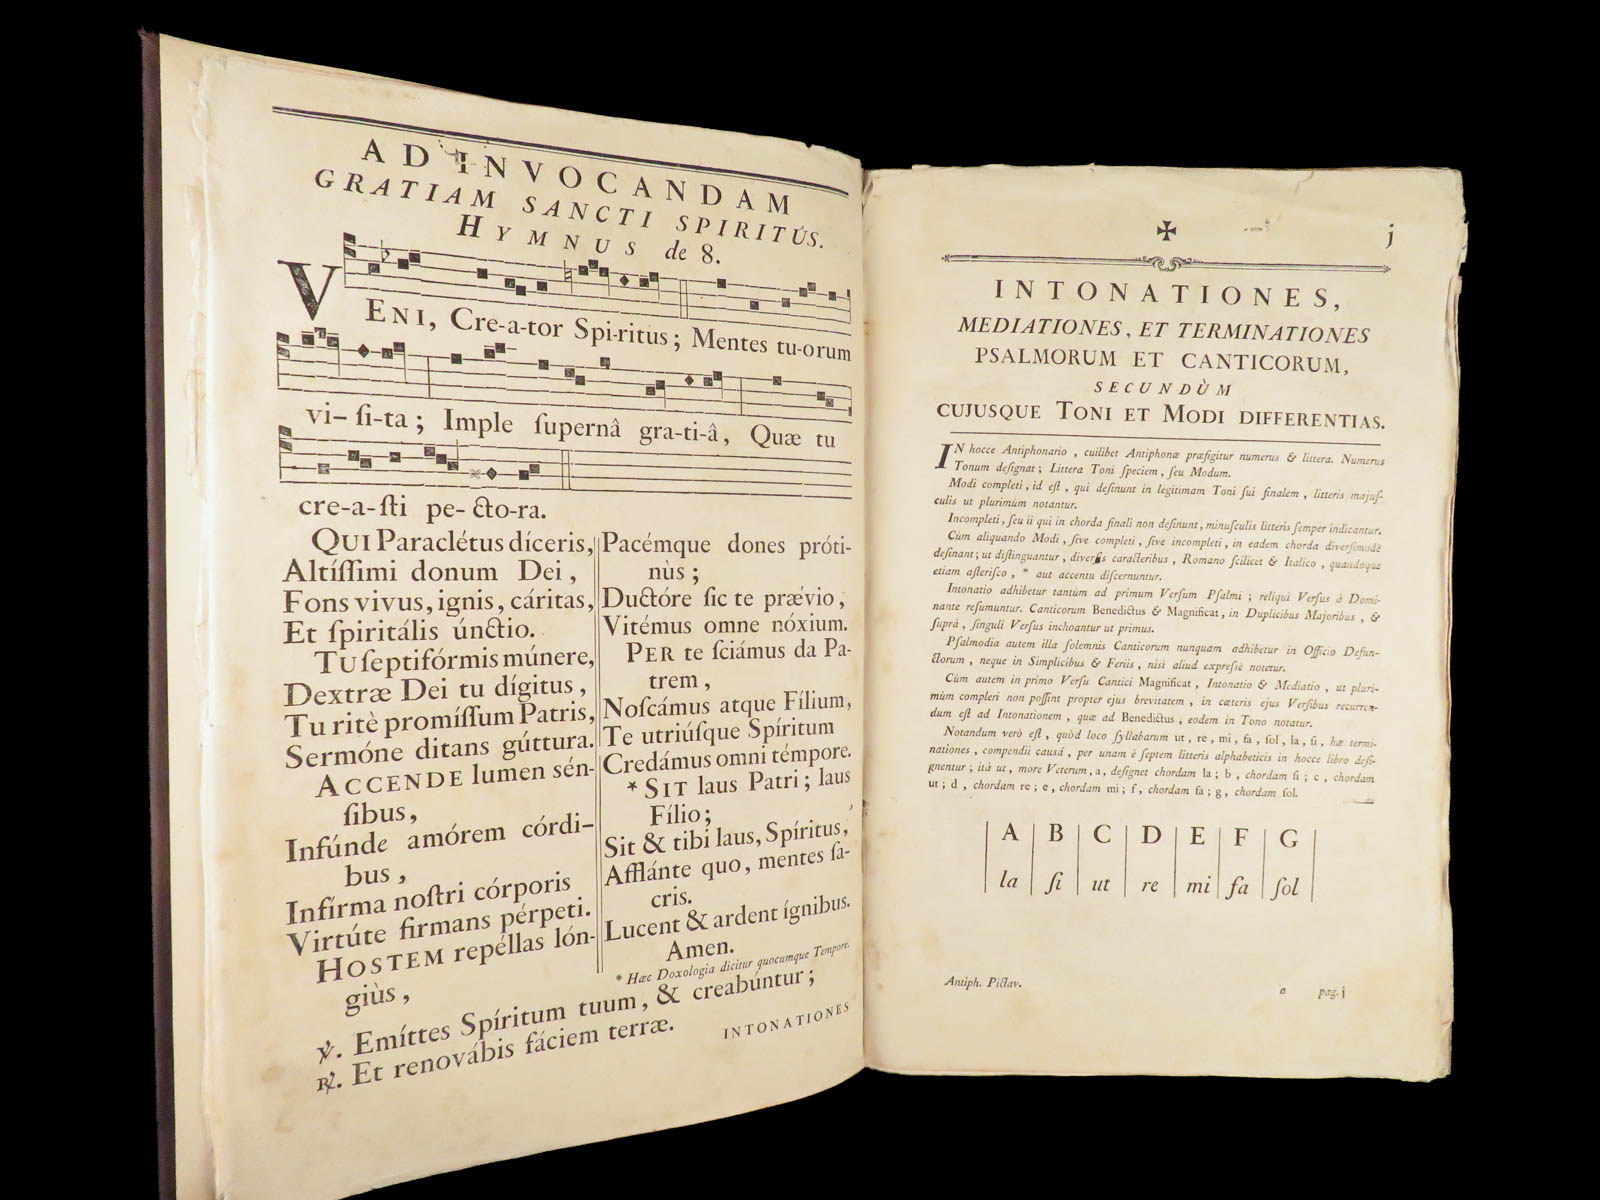 AD INVOCANDAM
GRATIAM SANCTI SPIRITÚS.
HYMNUS de 8.
VENI, Cre-a-tor Spi-ritus; Mentes tu-orum
vi- ſi-ta; Imple ſupernâ gra-ti-â, Quæ tu
cre-a-ſti pe-cto-ra.
QUI Paraclétus díceris,
Altíſſimi donum Dei,
Fons vivus, ignis, cáritas,
Et ſpiritális únctio.
TU ſeptifórmis múnere,
Dextræ Dei tu dígitus,
Tu ritè promíſſum Patris,
Sermóne ditans gúttura.
ACCENDE lumen sén-
ſibus,
Infúnde amórem córdi-
bus,
Infírma noſtri córporis
Virtúte firmans pérpeti.
HOSTEM repéllas lón-
giùs,
Pacémque dones próti-
nùs;
Ductóre ſic te prævio,
Vitémus omne nóxium.
PER te ſciámus da Pa-
trem,
Noſcámus atque Fílium,
Te utriúſque Spíritum
Credámus omni témpore.
* SIT laus Patri; laus
Fílio;
Sit & tibi laus, Spíritus,
Afflánte quo, mentes ſa-
cris.
Lucent & ardent ígnibus.
Amen.
* Hæc Doxologia dicitur quocumque Tempore.
℣. Emíttes Spíritum tuum, & creabúntur;
℟. Et renovábis fáciem terræ.
INTONATIONES
j
INTONATIONES,
MEDIATIONES, ET TERMINATIONES
PSALMORUM ET CANTICORUM,
SECUNDÙM
CUJUSQUE TONI ET MODI DIFFERENTIAS.
IN hocce Antiphonario, cuilibet Antiphonæ præfigitur numerus & littera. Numerus
Tonum deſignat; Littera Toni ſpeciem, ſeu Modum.
Modi completi, id eſt, qui deſinunt in legitimam Toni ſui finalem, litteris majuſ-
culis ut plurimùm notantur.
Incompleti, ſeu ii qui in chorda finali non deſinunt, minuſculis litteris ſemper indicantur.
Cùm aliquando Modi, ſive completi, ſive incompleti, in eadem chorda diverſimodè
deſinant; ut diſtinguantur, diverſis caracteribus, Romano ſcilicet & Italico, quandoque
etiam aſteriſco, * aut accentu diſcernuntur.
Intonatio adhibetur tantùm ad primum Verſum Pſalmi; reliqui Verſus à Domi-
nante reſumuntur. Canticorum Benedictus & Magnificat, in Duplicibus Majoribus, &
ſuprà, ſinguli Verſus inchoantur ut primus.
Pſalmodia autem illa ſolemnis Canticorum nunquam adhibetur in Officio Defun-
ctorum, neque in Simplicibus & Feriis, niſi aliud expreſsè notetur.
Cùm autem in primo Verſu Cantici Magnificat, Intonatio & Mediatio, ut pluri-
mùm compleri non poſſint propter ejus brevitatem, in cæteris ejus Verſibus recurren-
dum eſt ad Intonationem, quæ ad Benedictus, eodem in Tono notatur.
Notandum verò eſt, quòd loco ſyllabarum ut, re, mi, fa, ſol, la, ſi, hæ termi-
nationes, compendii causâ, per unam è ſeptem litteris alphabeticis in hocce libro deſi-
gnentur; ità ut, more Veterum, a, deſignet chordam la; b, chordam ſi; c, chordam
ut; d, chordam re; e, chordam mi; f, chordam fa; g, chordam ſol.
A B C D E F G
la ſi ut re mi fa ſol
Antiph. Pictav. a pag. j